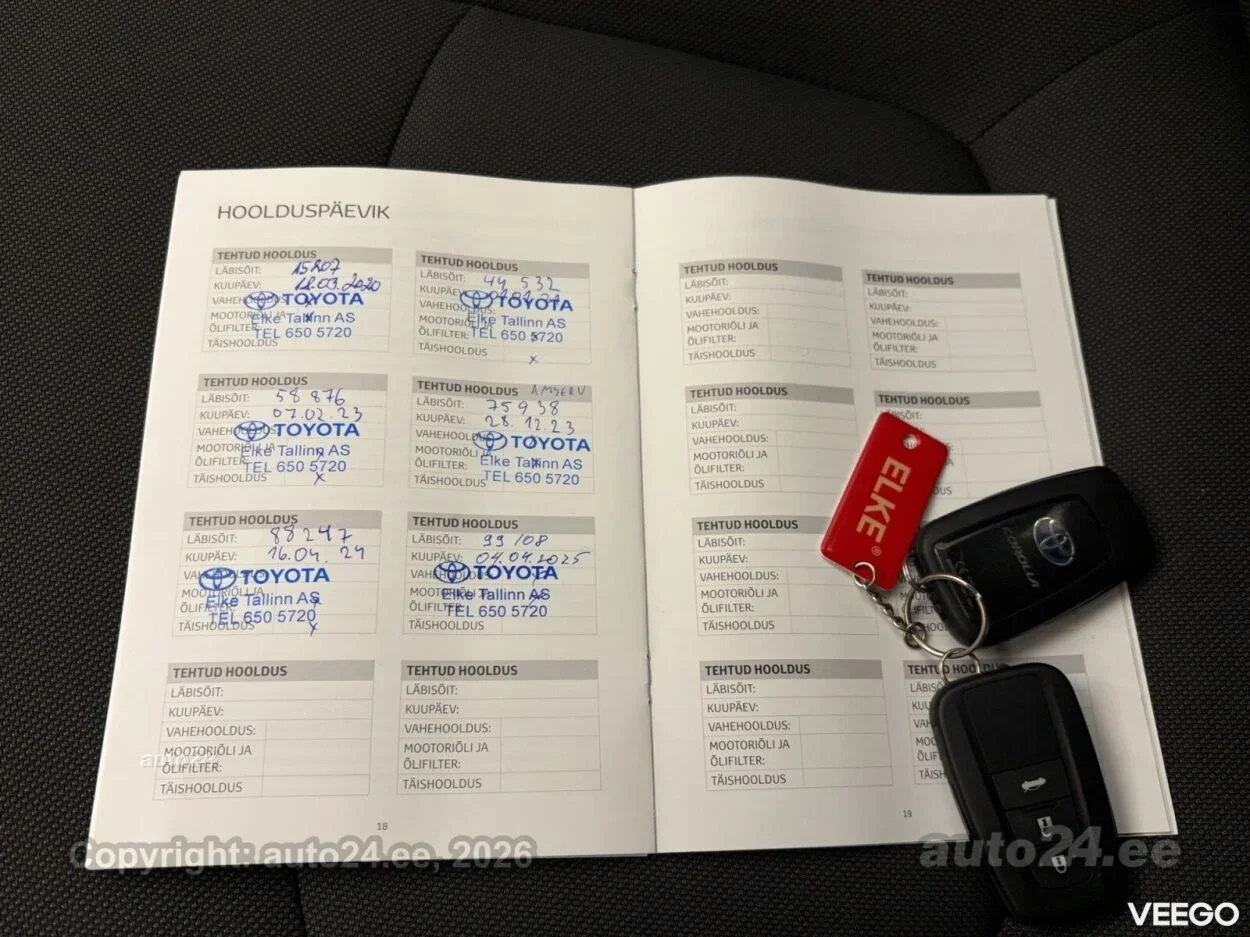 HOOLDUSPÄEVIK
TEHTUD HOOLDUS
LÄBISÕIT: 15207
KUUPÄEV: 12.03.2020
VAHEHOOLDUS:
TOYOTA
MOOTORIÕLI JA
Elke Tallinn AS
ÕLIFILTER:
TEL 650 5720
TÄISHOOLDUS
TEHTUD HOOLDUS
LÄBISÕIT: 44 532
KUUPÄEV:
VAHEHOOLDUS:
TOYOTA
MOOTORIÕLI JA
Elke Tallinn AS
ÕLIFILTER:
TEL 650 5720
TÄISHOOLDUS x
TEHTUD HOOLDUS
LÄBISÕIT: 58 876
KUUPÄEV: 07.02.23
VAHEHOOLDUS:
TOYOTA
MOOTORIÕLI JA
Elke Tallinn AS
ÕLIFILTER:
TEL 650 5720
TÄISHOOLDUS x
TEHTUD HOOLDUS AMSERV
LÄBISÕIT: 75938
KUUPÄEV: 28.12.23
VAHEHOOLDUS:
TOYOTA
MOOTORIÕLI JA
Elke Tallinn AS
ÕLIFILTER:
TEL 650 5720
TÄISHOOLDUS
TEHTUD HOOLDUS
LÄBISÕIT: 88247
KUUPÄEV: 16.04.24
VAHEHOOLDUS:
TOYOTA
MOOTORIÕLI JA
Elke Tallinn AS
ÕLIFILTER:
TEL 650 5720
TÄISHOOLDUS x
TEHTUD HOOLDUS
LÄBISÕIT: 99 108
KUUPÄEV: 04.04.2025
VAHEHOOLDUS:
TOYOTA
MOOTORIÕLI JA
Elke Tallinn AS
ÕLIFILTER:
TEL 650 5720
TÄISHOOLDUS
TEHTUD HOOLDUS
LÄBISÕIT:
KUUPÄEV:
VAHEHOOLDUS:
MOOTORIÕLI JA
ÕLIFILTER:
TÄISHOOLDUS
TEHTUD HOOLDUS
LÄBISÕIT:
KUUPÄEV:
VAHEHOOLDUS:
MOOTORIÕLI JA
ÕLIFILTER:
TÄISHOOLDUS
18
TEHTUD HOOLDUS
LÄBISÕIT:
KUUPÄEV:
VAHEHOOLDUS:
MOOTORIÕLI JA
ÕLIFILTER:
TÄISHOOLDUS
TEHTUD HOOLDUS
LÄBISÕIT:
KUUPÄEV:
VAHEHOOLDUS:
MOOTORIÕLI JA
ÕLIFILTER:
TÄISHOOLDUS
TEHTUD HOOLDUS
LÄBISÕIT:
KUUPÄEV:
VAHEHOOLDUS:
MOOTORIÕLI JA
ÕLIFILTER:
TÄISHOOLDUS
TEHTUD HOOLDUS
LÄBISÕIT:
TEHTUD HOOLDUS
LÄBISÕIT:
KUUPÄEV:
VAHEHOOLDUS:
MOOTORIÕLI JA
ÕLIFILTER:
TÄISHOOLDUS
TEHTUD HOOLDUS
LÄBISÕIT:
KUUPÄEV:
VAHEHOOLDUS:
MOOTORIÕLI JA
ÕLIFILTER:
TÄISHOOLDUS
TEHTUD HOOLDUS
19
ELKE®
COROLLA
auto24
Copyright: auto24.ee, 2026
auto24.ee
VEEGO